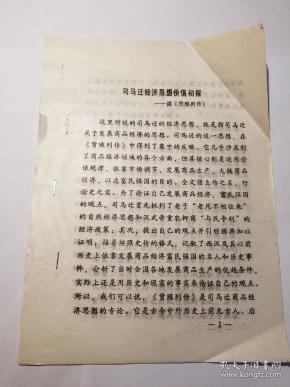 司马迁经济思想价值初探
——读《货殖列传》
这里所说的司马迁的经济思想，就是指司马迁
关于发展商品经济的思想。司马迁的这一思想，在
《货殖列传》中得到了集中的反映。它几乎涉及到
了商品经济领域的各个方面，但其核心则是运用价
值规律、依靠市场调节，发展商品生产、大搞商品
经济，以达富民强国的目的。全文借立传之名，行
论史之实。为了论证自己发展商品经济、富民强国
的观点，司马迁首先批判了老子“老死不相往来”
的自然经济思想和汉武帝重农抑商“与民争利”的
经济政策；其次，提出了自己的观点并引经据典加以
证明；接着按照史传的格式，记叙了西汉及其以前
历史上依靠发展商品经济致富的各国名人和历史事
件，分析了当时全国各地发展商品生产的优越条件，
实际上还是用历史和现实的事实来论证自己的观点。
所以，我们可以说，《货殖列传》是司马迁商品经
济思想的专论，它是古今中外历史上前无古人、后
—1—